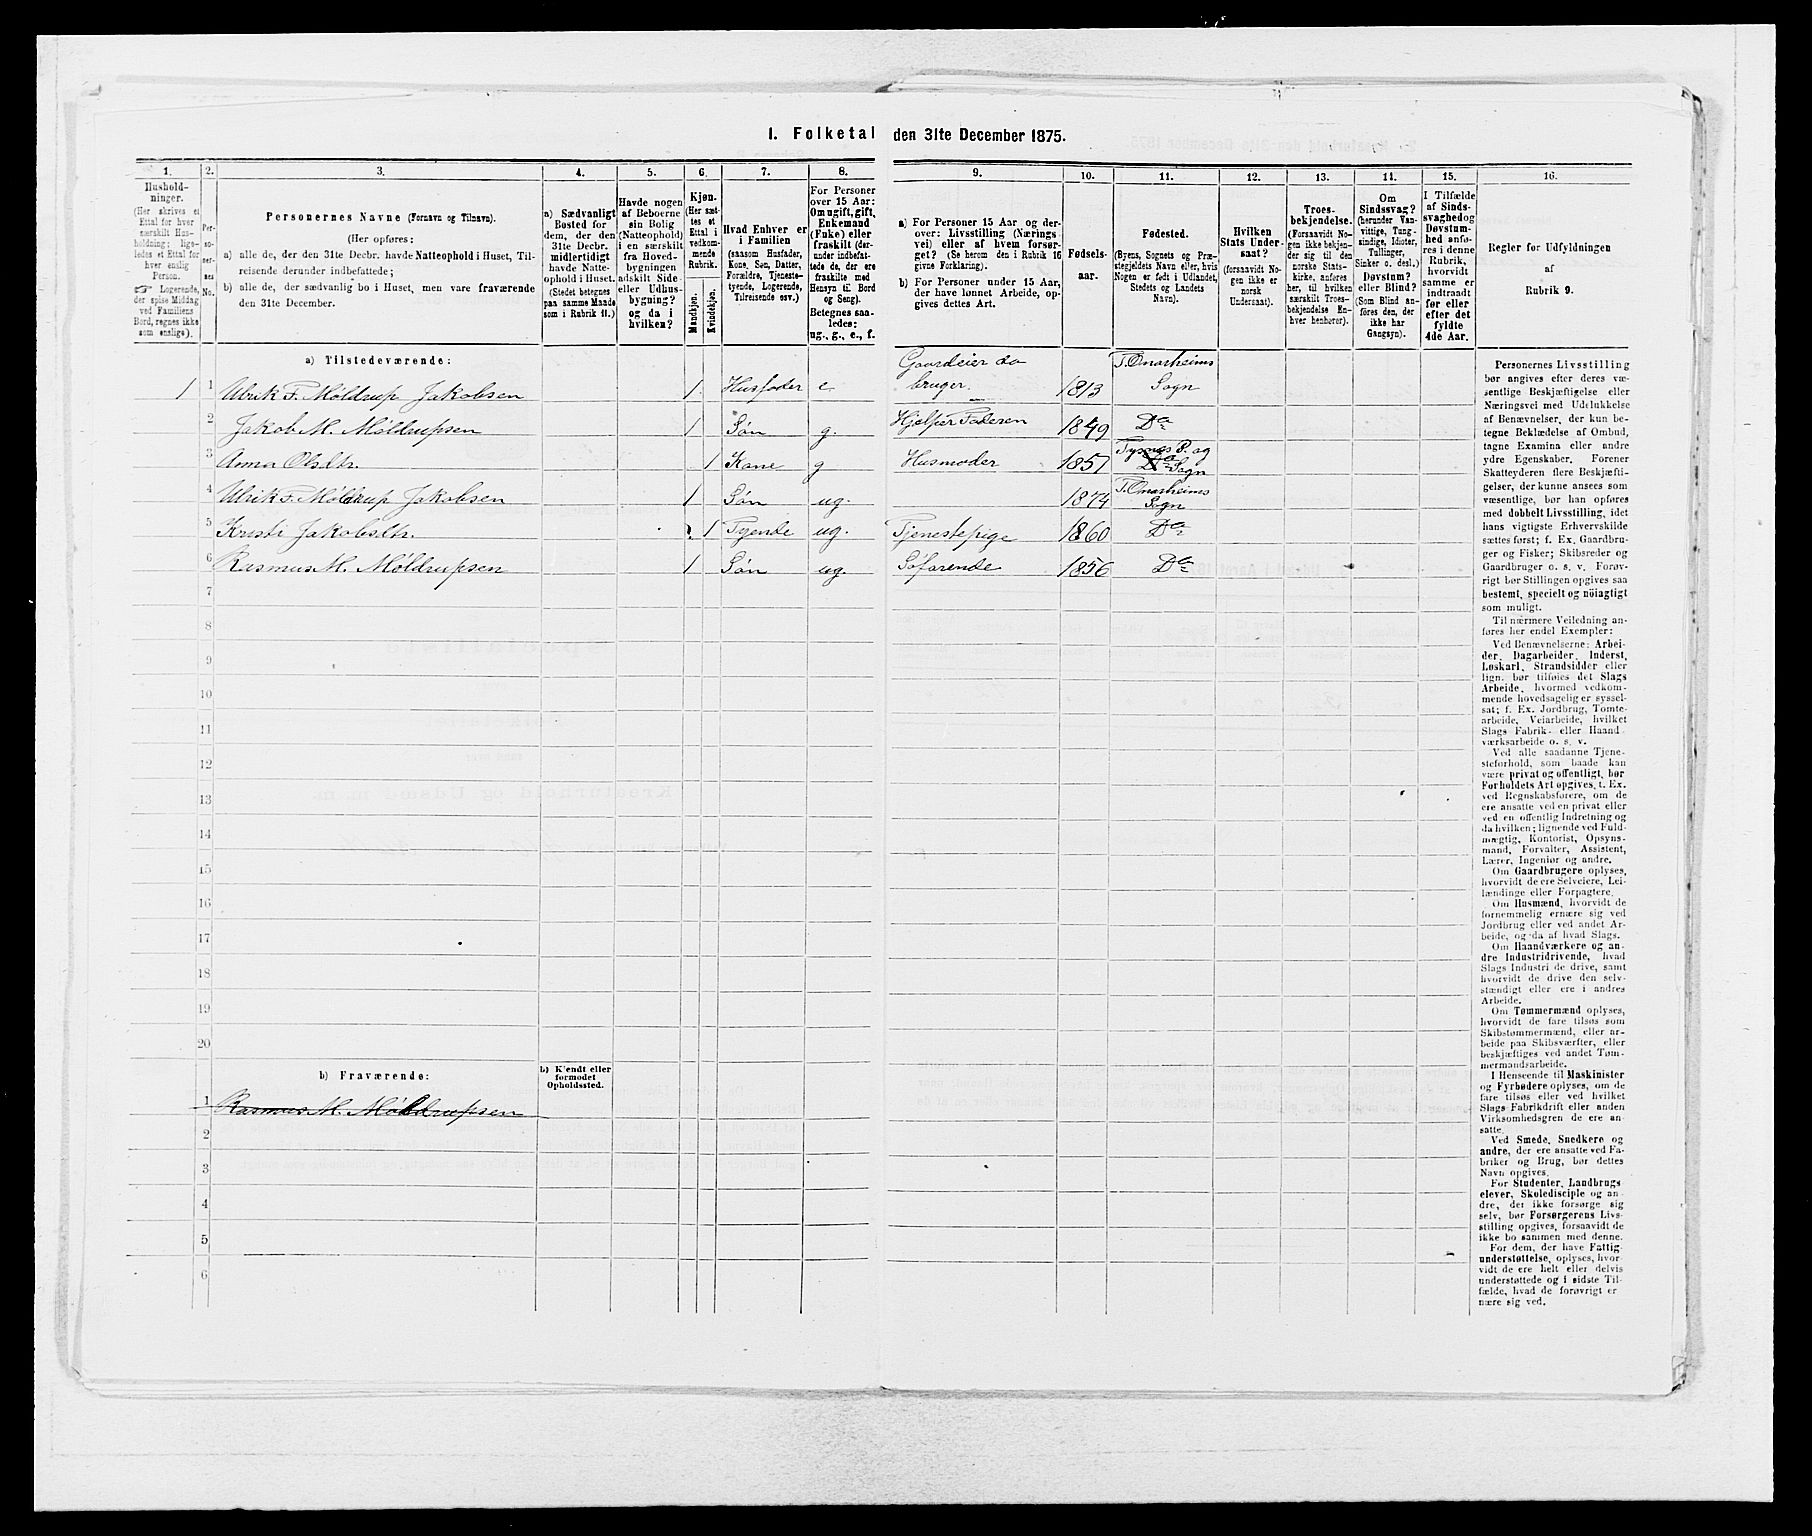 I. Folketal den 31te December 1875.
1.
2.
3.
4.
5.
6.
7.
8.
9.
10.
11.
12.
13.
14.
15.
16.
Hushold-
ninger.
(Her skrives et
Ettal for hver
særskilt Hus-
holdning; lige-
ledes et Ettal for
hver enslig
Person.
☞ Logerende,
der spise Middag
ved Familiens
Bord, regnes ikke
som enslige).
Per-
so-
ner-
nes
No.
Personernes Navne (Fornavn og Tilnavn).
(Her opføres:
a) alle de, der den 31te Decbr. havde Natteophold i Huset, Til-
reisende derunder indbefattede;
b) alle de, der sædvanlig bo i Huset, men vare fraværende
den 31te December.
a) Sædvanligt
Bosted for
dem, der den
31te Decbr.
midlertidigt
havde Natte-
ophold i Huset.
(Stedet betegnes
paa samme Maade
som i Rubrik 11.)
Havde nogen
af Beboerne
sin Bolig
(Natteophold)
i en særskilt
fra Hoved-
bygningen
adskilt Side-
eller Udhus-
bygning?
og da i
hvilken?
Kjøn.
(Her sæt-
tes et
Ettal i
vedkom-
mende
Rubrik.
Mandkjøn.
Kvindekjøn.
Hvad Enhver er
i Familien
(saasom Husfader,
Kone, Søn, Datter,
Forældre, Tjeneste-
tyende, Logerende,
Tilreisende osv.)
For Personer
over 15 Aar:
Om ugift, gift,
Enkemand
(Enke) eller
fraskilt (der-
under indbefat-
tede de, der ere
fraskilte med
Hensyn til Bord
og Seng).
Betegnes saa-
ledes:
ug., g., e., f.
a) For Personer 15 Aar og der-
over: Livsstilling (Nærings-
vei) eller af hvem forsør-
get? (Se herom den i Rubrik 16
givne Forklaring).
b) For Personer under 15 Aar,
der have lønnet Arbeide, op-
gives dettes Art.
Fødsels-
aar.
Fødested.
(Byens, Sognets og Præ-
stegjeldets Navn eller, hvis
Nogen er født i Udlandet,
Stedets og Landets
Navn).
Hvilken
Stats Under-
saat?
(forsaavidt No-
gen ikke er
norsk
Undersaat).
Troes-
bekjendelse.
(Forsaavidt No-
gen ikke bekjen-
der sig til den
norske Stats-
kirke, anføres
her, til hvilken
særskilt Troes-
bekjendelse En-
hver henhører).
Om
Sindssvag?
(herunder Van-
vittige, Tung-
sindige, Idioter,
Tullinger,
Sinker o. desl.)
Døvstum?
eller Blind?
(Som Blind an-
føres den, der
ikke har
Gangsyn).
I Tilfælde
af Sinds-
svaghed og
Døvstum-
hed anfø-
res i denne
Rubrik,
hvorvidt
samme er
indtraadt
før eller
efter det
fyldte
4de Aar.
Regler for Udfyldningen
af
Rubrik 9.
a) Tilstedeværende:
1 1 Ulrik F. Møldrup Jakobsen 1 Husfader e Gaardeier do bruger. 1813 T. Onarheims Sogn
2 Jakob M. Møldrupsen 1 Søn g. Hjelper Faderen 1849 Do
3 Anna Olsdtr. 1 Kone g Husmoder 1851 Tysnes P. og Do Sogn
4 Ulrik F. Møldrup Jakobsen 1 Søn ug. 1874 T. Onarheims Sogn
5 Kristi Jakobsdtr. 1 Tyende ug. Tjenestepige 1860 Do
6 Rasmus M. Møldrupsen 1 Søn ug. Søfarende 1856 Do
7
8
9
10
11
12
13
14
15
16
17
18
19
20
b) Fraværende:
b) Kjendt eller
formodet
Opholdssted.
1 Rasmus M. Møldrupsen
2
3
4
5
6
Personernes Livsstilling
bør angives efter deres væ-
sentlige Beskjæftigelse eller
Næringsvei med Udelukkelse
af Benævnelser, der kun be-
tegne Beklædelse af Ombud,
tagne Examina eller andre
ydre Egenskaber. Forener
Skatteyderen flere Beskjæfti-
gelser, der kunne ansees som
væsentlige, bør han opføres
med dobbelt Livsstilling, idet
hans vigtigste Erhvervskilde
sættes først; f. Ex. Gaardbru-
ger og Fisker; Skibsreder og
Gaardbruger o. s. v. Forøv-
rigt bør Stillingen opgives saa
bestemt, specielt og nöiagtigt
som muligt.
Til nærmere Veiledning an-
føres her endel Exempler:
Ved Benævnelserne: Arbei-
der, Dagarbeider, Inderst,
Løskarl, Strandsidder eller
lign. bør tilføies det Slags
Arbeide, hvormed vedkom-
mende hovedsagelig er syssel-
sat; f. Ex. Jordbrug, Tomte-
arbeide, Veiarbeide, hvilket
Slags Fabrik- eller Haand
værksarbeide o. s. v.
Ved alle saadanne Tjene-
steforhold, som baade kan
være privat og offentligt, bør
Forholdets Art opgives, t. Ex.
ved Regnskabsførere, om de
ere ansatte ved en privat eller
ved en offentlig Indretning og
da hvilken; lignende ved Fuld-
mægtig, Kontorist, Opsyns-
mand, Forvalter, Assistent,
Lærer, Ingeniør og andre.
Om Gaardbrugere oplyses,
hvorvidt de ere Selveiere, Lei-
lændinge eller Forpagtere.
Om Husmænd, hvorvidt de
fornemmelig ernære sig ved
Jordbrug eller ved andet Ar-
beide, og da af hvad Slags.
Om Haandværkere og an-
dre Industridrivende, hvad
Slags Industri de drive, samt
hvorvidt de drive den selv-
stændigt eller ere i andres
Arbeide.
Om Tømmermænd oplyses,
hvorvidt de fare tilsøs som
Skibstømmermænd, eller ar-
beide paa Skibsværfter, eller
beskjæftiges ved andet Tøm-
mermandsarbeide.
I Henseende til Maskinister
og Fyrbødere oplyses, om de
fare tilsøs eller ved hvilket
Slags Fabrikdrift eller anden
Virksomhedsgren de ere an-
satte.
Ved Smede, Snedkere og
andre, der ere ansatte ved Fa-
briker og Brug, bør dettes
Navn opgives.
For Studenter, Landbrugs
elever, Skoledisciple og an-
dre, der ikke forsørge sig
selv, bør Forsørgerens Livs-
stilling opgives, forsaavidt de
ikke bo sammen med denne.
For dem, der have Fattig-
understøttelse, oplyses, hvor-
vidt de ere helt eller delvis
understøttede og i sidste Til-
fælde, hvad de forøvrigt er
nære sig ved.